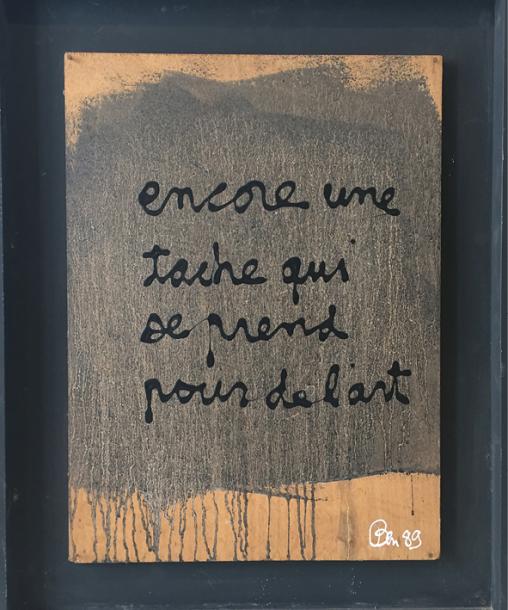 encore une
tache qui
se prend
pour de l'art
Ben 89